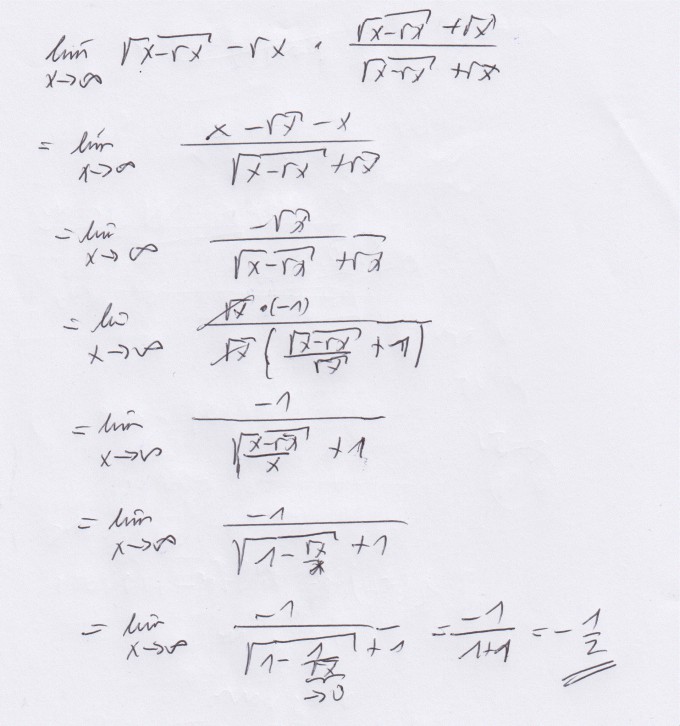 lim x→∞ √(x-√x) - √x · (√(x-√x) + √x)/(√(x-√x) + √x)
= lim x→∞ (x - √x - x)/(√(x-√x) + √x)
= lim x→∞ (-√x)/(√(x-√x) + √x)
= lim x→∞ (√x · (-1))/(√x (√(x-√x)/√x + 1))
= lim x→∞ (-1)/(√((x-√x)/x) + 1)
= lim x→∞ (-1)/(√(1 - √x/x) + 1)
= lim x→∞ (-1)/(√(1 - 1/√x) + 1) = (-1)/(1+1) = -1/2
→0